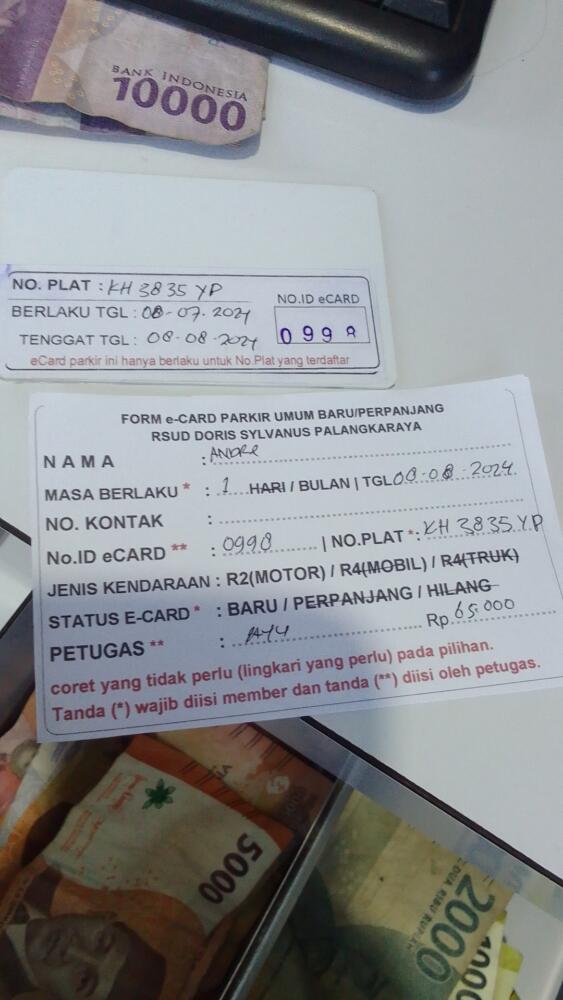 BANK INDONESIA
10000
NO. PLAT : KH 3835 YP
BERLAKU TGL : 08-07-2024
TENGGAT TGL : 08-08-2024
NO.ID eCARD
0998
eCard parkir ini hanya berlaku untuk No.Plat yang terdaftar
FORM e-CARD PARKIR UMUM BARU/PERPANJANG
RSUD DORIS SYLVANUS PALANGKARAYA
NAMA : ANDRE
MASA BERLAKU * : 1 HARI / BULAN | TGL 08-08-2024
NO. KONTAK :
No.ID eCARD ** : 0998 | NO.PLAT * : KH 3835 YP
JENIS KENDARAAN : R2(MOTOR) / R4(MOBIL) / R4(TRUK)
STATUS E-CARD * : BARU / PERPANJANG / HILANG
PETUGAS ** : AYU Rp 65.000
coret yang tidak perlu (lingkari yang perlu) pada pilihan.
Tanda (*) wajib diisi member dan tanda (**) diisi oleh petugas.
5000
DUA RIBU RUPIAH
2000